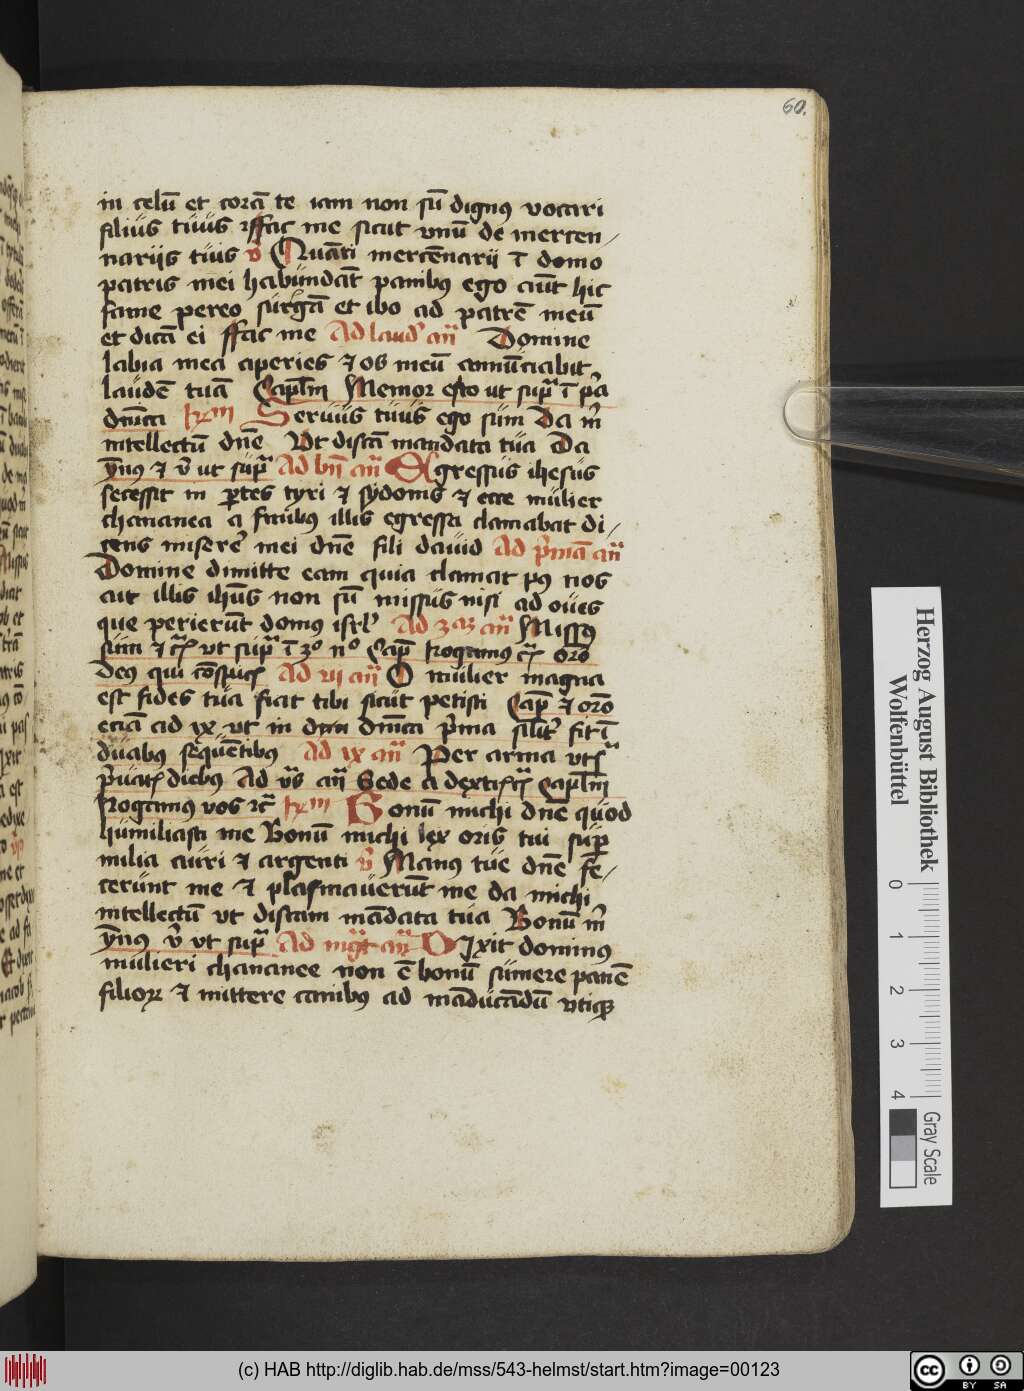 60.
in celū et corā te iam non sū dignꝰ vocari
filius tuus ⁊ffac me sicut vnū de mercen/
nariis tuis v̄ Quāti mercēnarii ī domo
patris mei habundāt panibꝰ ego aūt hic
fame pereo surgā et ibo ad patrē meū
et dicā ei ffac me Ad laud̾ an̄ Domine
labia mea aperies ⁊ os meū annūciabit
laudē tuā Capl̄m Memor esto ut supᷓ ī pᷓa
dn̄ica Seruus tuus ego sum Da m̄
intellectū dn̄e Vt discā mandata tua Da
ỹnꝰ ⁊ v̄ ut supᷓ Ad bn̄ an̄ Egressus ihesus
secessit in ꝑtes tyri ⁊ sydonis ⁊ ecce mulier
chananea a finibꝰ illis egressa clamabat di/
cens miserē mei dn̄e fili dauid Ad p̄mā an̄
Domine dimitte eam quia clamat pꝰ nos
ait illis ihūs non sū missus nisi ad oues
que perierūt domꝰ isrl̄ Ad 3am an̄ Missꝰ
sum ⁊ cͤ vt supᷓ ī 3º nº Cap̄ Rogamꝰ cͤ oro
deꝰ qui cōspicͤ Ad vi an̄ O mulier magna
est fides tua fiat tibi sicut petisti Cap̄ ⁊ orō
eciā ad ix vt in dn̄ica p̄ma silit̄ fit ī
duabus sequētibus Ad ix an̄ Per arma vtͤ
p̄uatͤ diebus Ad vs̄ an̄ Sede a dextͤ cͤ Capl̄m
Rogamus vos ⁊c̄ Bonū michi dn̄e quod
humiliasti me Bonū michi lex oris tui suꝑ
milia auri ⁊ argenti v̄ Manꝰ tue dn̄e fe/
cerunt me ⁊ plasmauerūt me da michi
intellectū vt discam mādata tua Bonū m̄
ỹnus v̄ vt supᷓ Ad mgᷓt an̄ Dixit dominꝰ
mulieri chananee non ē bonū sumere panē
filioꝝ ⁊ mittere canibꝰ ad māducādū vtiqꝫ
Herzog August Bibliothek
Wolfenbüttel
0 1 2 3 4
Gray Scale
(c) HAB http://diglib.hab.de/mss/543-helmst/start.htm?image=00123
cc BY SA